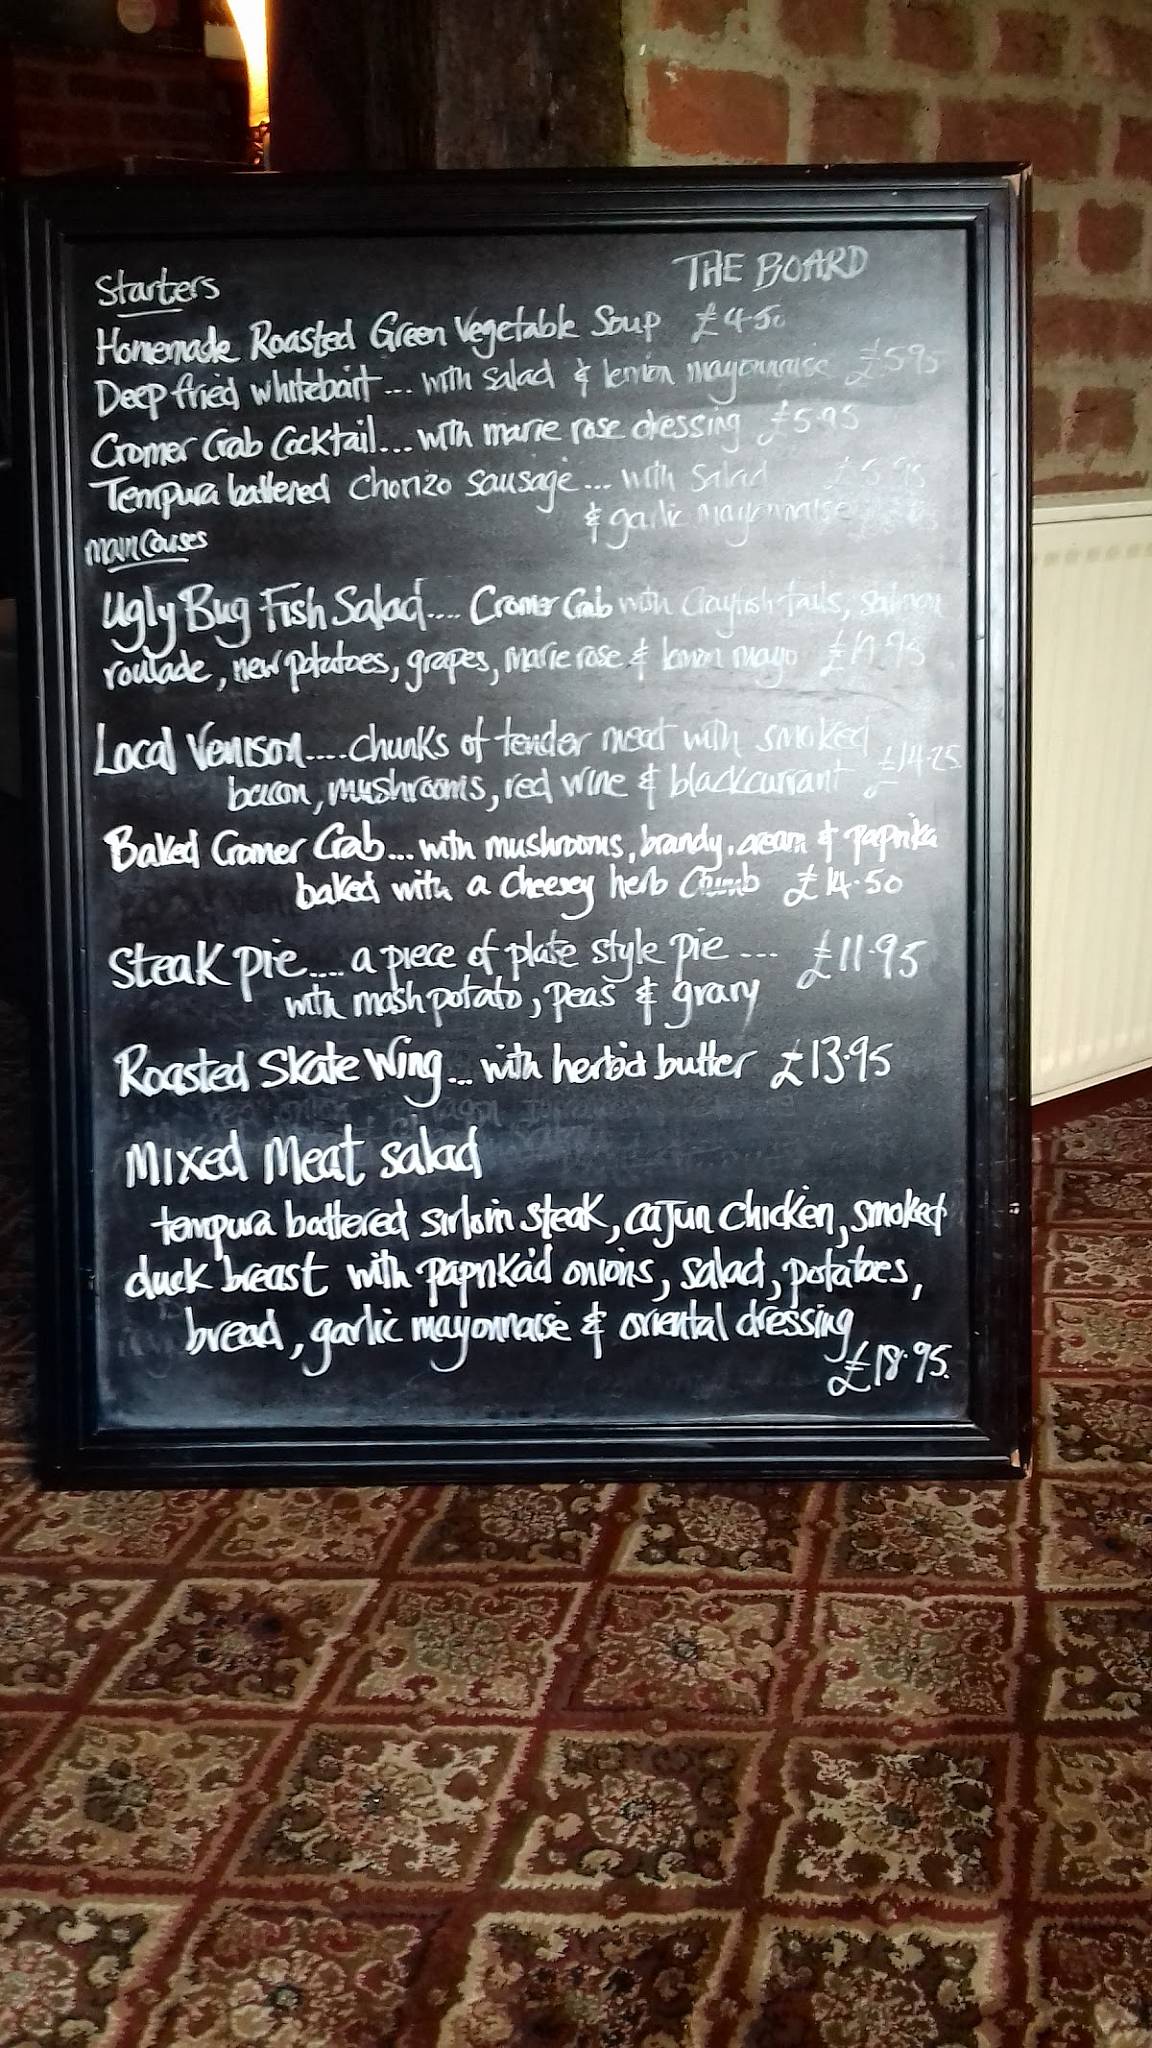 THE BOARD
Starters
Homemade Roasted Green Vegetable Soup £4.50
Deep fried whitebait... with salad & lemon mayonnaise £5.95
Cromer Crab Cocktail... with marie rose dressing £5.95
Tempura battered Chorizo Sausage... with Salad £5.95
& garlic mayonnaise
Main Couses
Ugly Bug Fish Salad.... Cromer Crab with Crayfish tails, Salmon
roulade, new potatoes, grapes, marie rose & lemon mayo
Local Venison.... chunks of tender meat with smoked
bacon, mushrooms, red wine & blackcurrant £14.25
Baked Cromer Crab... with mushrooms, brandy, cream & paprika
baked with a cheesey herb Crumb £14.50
Steak pie.... a piece of plate style pie .... £11.95
with mash potato, peas & gravy
Roasted Skate Wing... with herb'd butter £13.95
Mixed Meat salad
tempura battered sirloin steak, cajun chicken, smoked
duck breast with paprika'd onions, salad, potatoes,
bread, garlic mayonnaise & oriental dressing
£18.95.